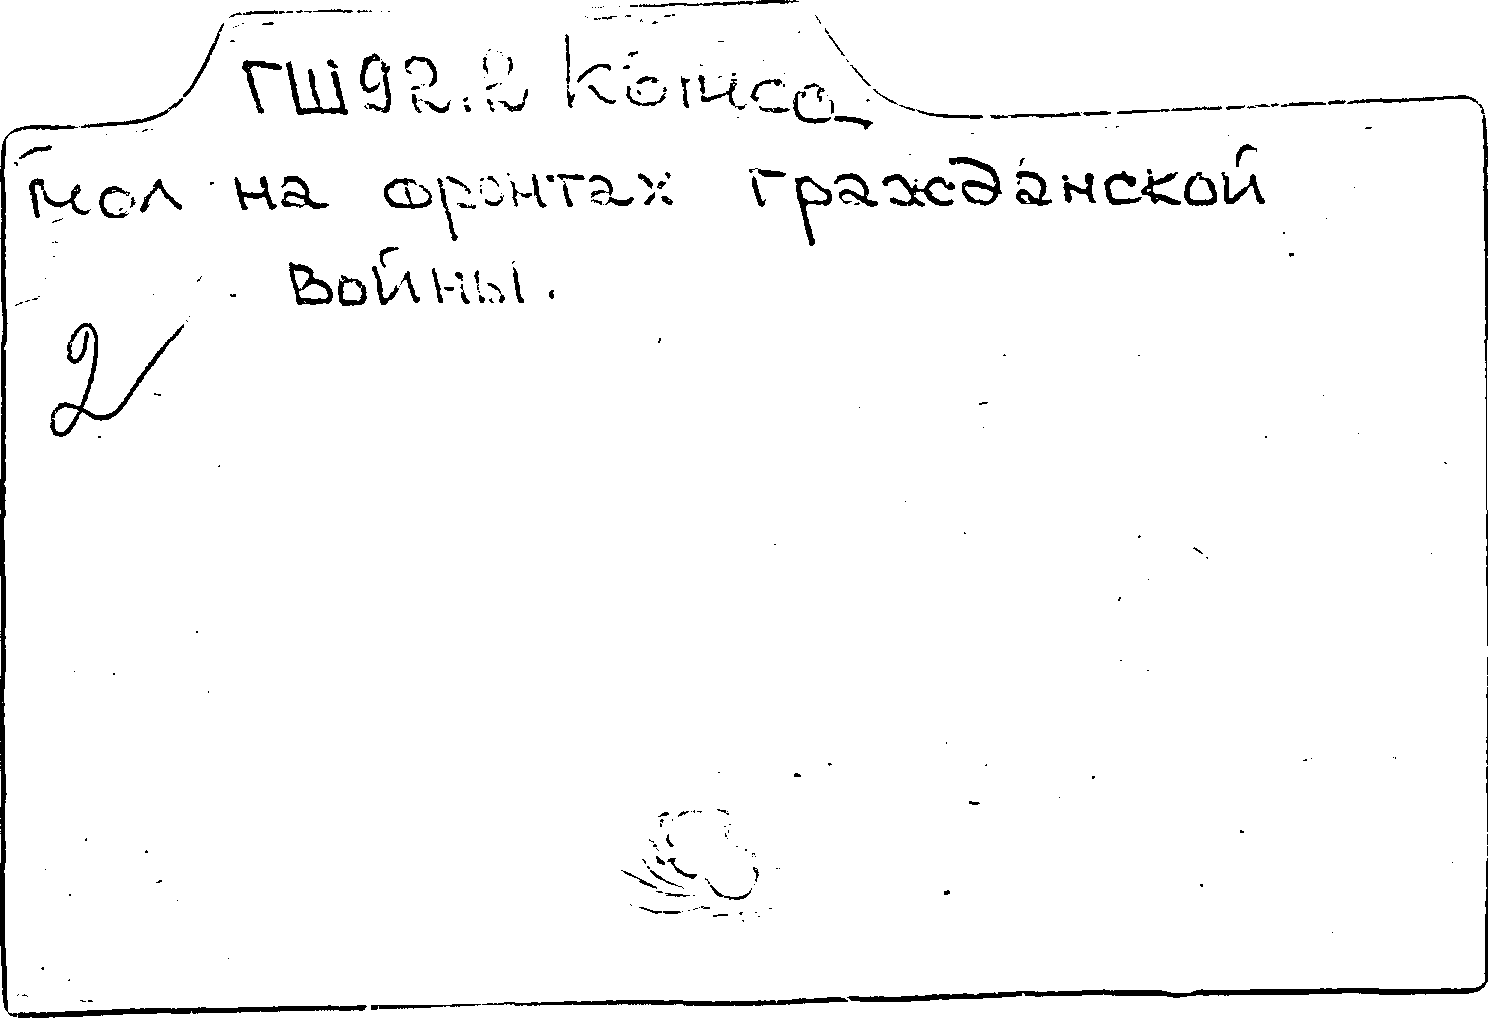 ГШ92.2 Комсо_
мол на фронтах гражданской
войны.
2